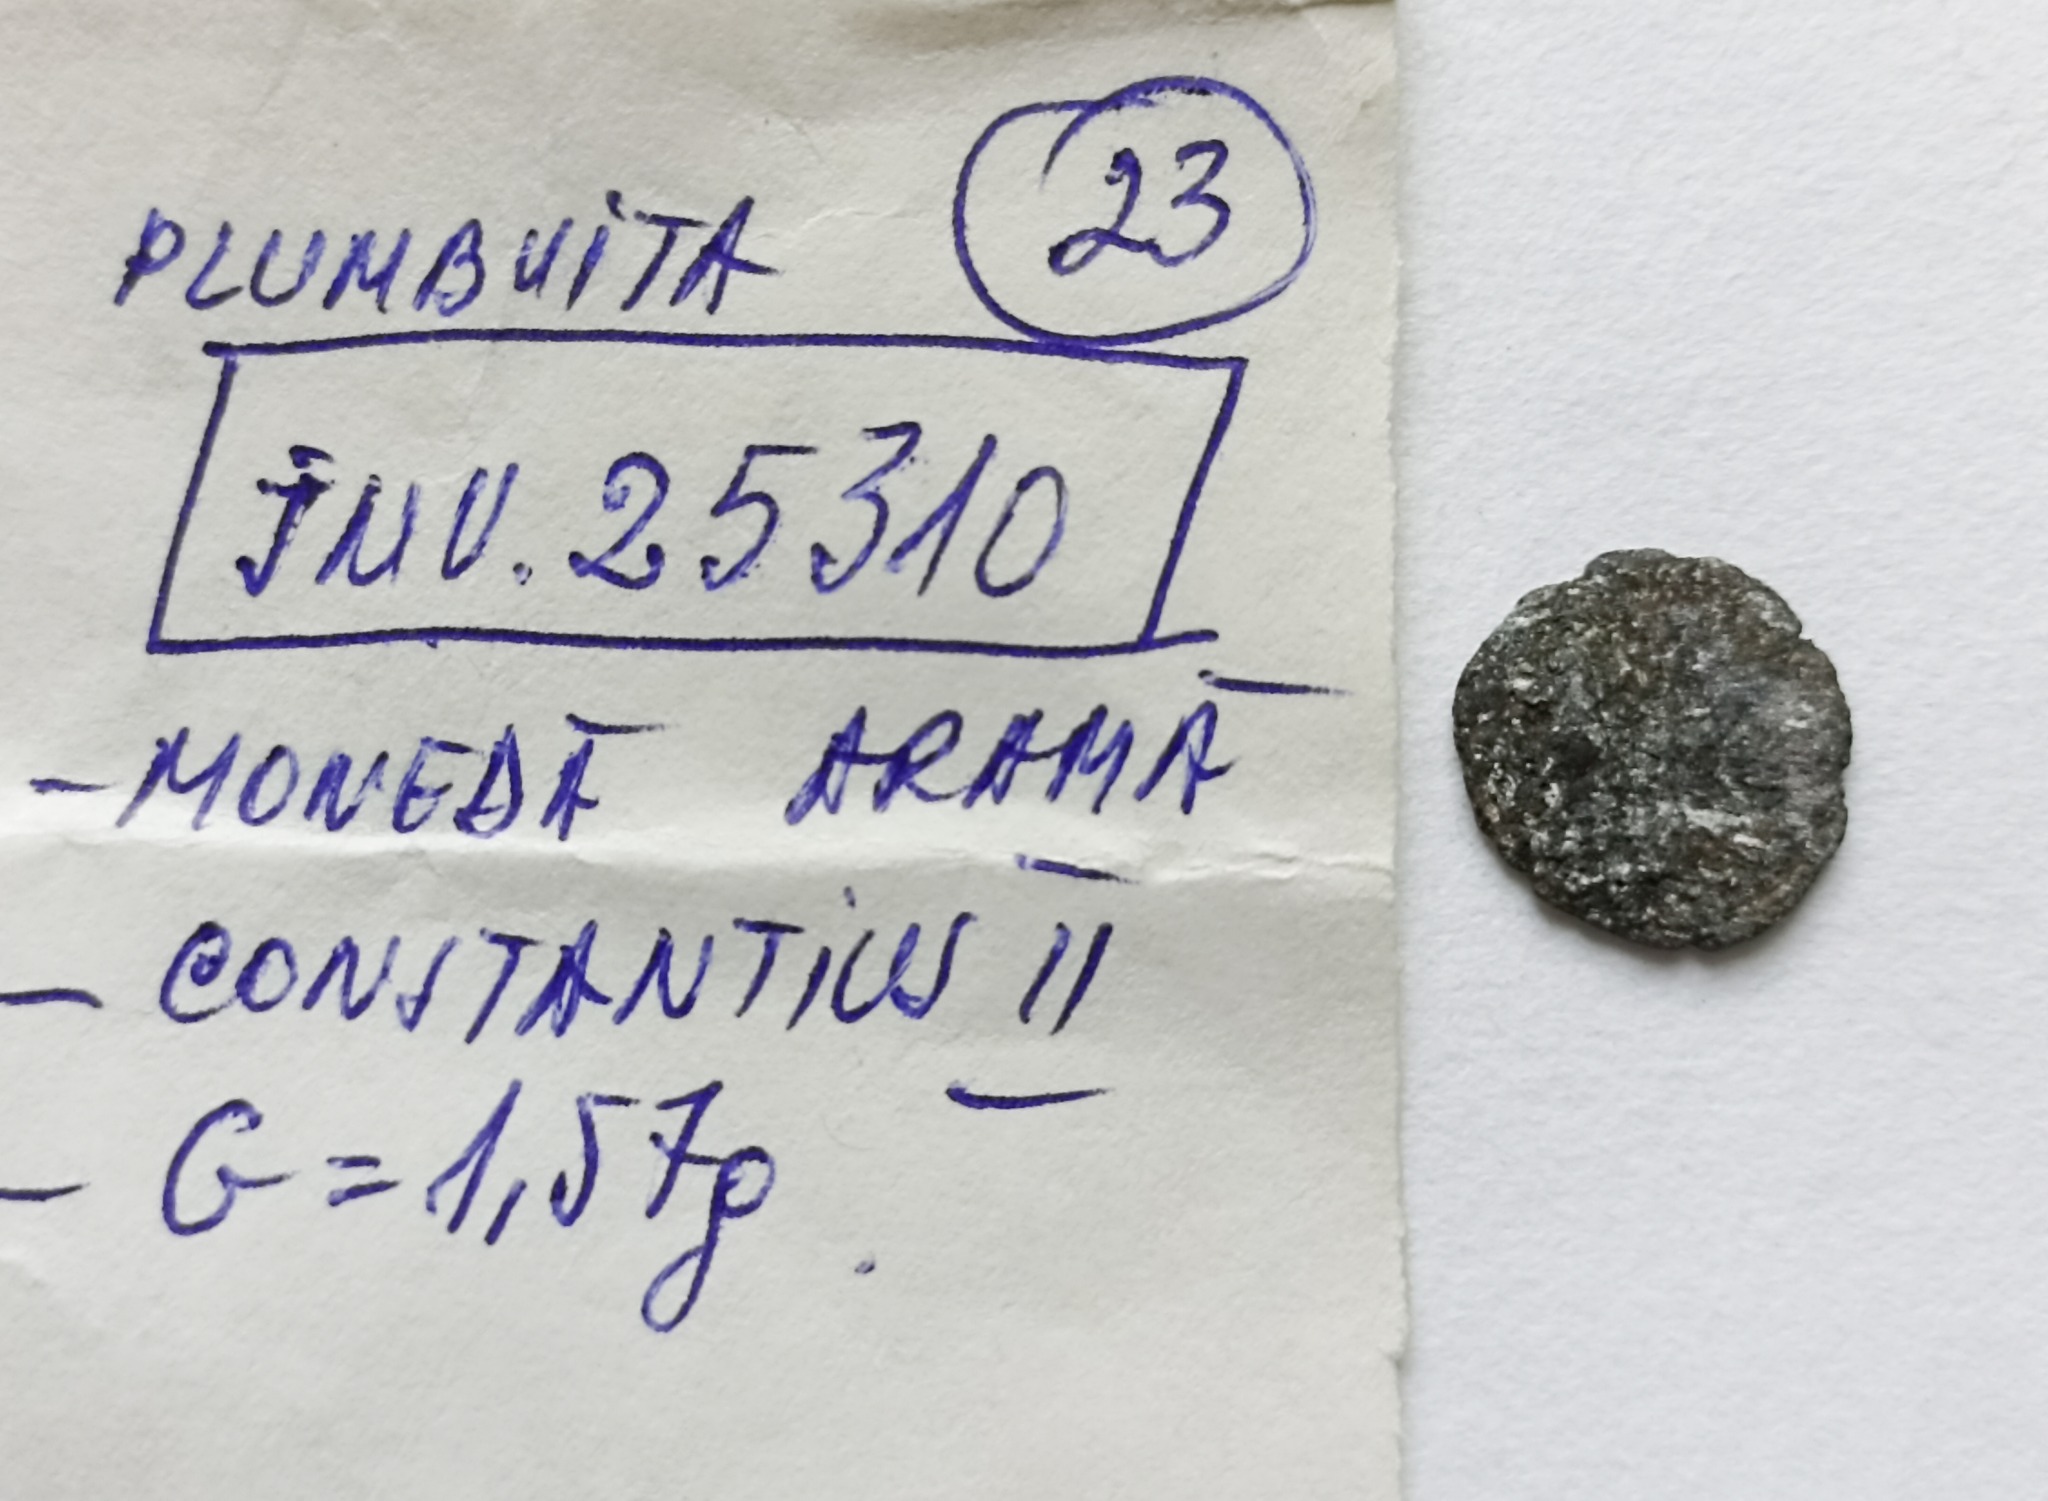 23
PLUMBUITA
INV. 25310
- MONEDĂ ARAMĂ
- CONSTANTIUS II
- G = 1,57g